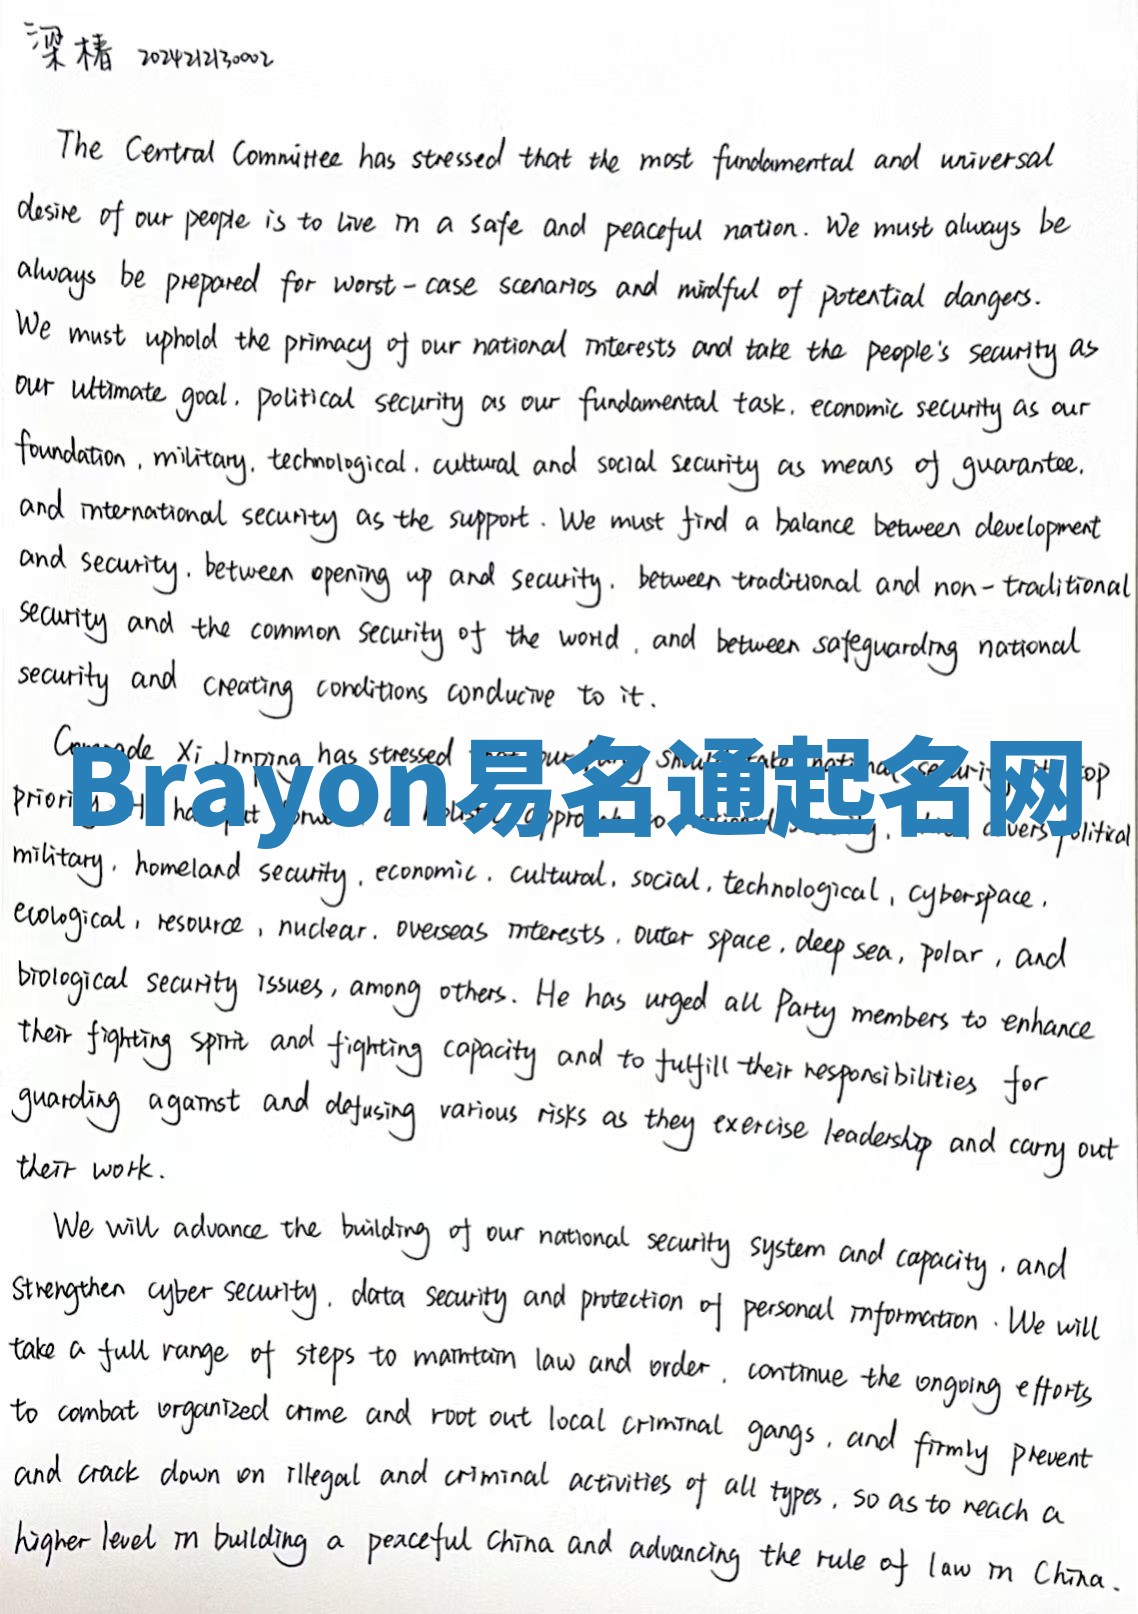 梁椿 2024212130002
The Central Committee has stressed that the most fundamental and universal
desire of our people is to live in a safe and peaceful nation. We must always be
always be prepared for worst-case scenarios and mindful of potential dangers.
We must uphold the primacy of our national interests and take the people's security as
our ultimate goal, political security as our fundamental task, economic security as our
foundation, military, technological, cultural and social security as means of guarantee,
and international security as the support. We must find a balance between development
and security, between opening up and security, between traditional and non-traditional
security and the common security of the world, and between safeguarding national
security and creating conditions conducive to it.
Comrade Xi Jinping has stressed our national security top
Brayon易名通起名网
political
military, homeland security, economic, cultural, social, technological, cyberspace,
ecological, resource, nuclear, overseas interests, outer space, deep sea, polar, and
biological security issues, among others. He has urged all Party members to enhance
their fighting spirit and fighting capacity and to fulfill their responsibilities for
guarding against and defusing various risks as they exercise leadership and carry out
their work.
We will advance the building of our national security system and capacity, and
strengthen cyber security, data security and protection of personal information. We will
take a full range of steps to maintain law and order, continue the ongoing efforts
to combat organized crime and root out local criminal gangs, and firmly prevent
and crack down on illegal and criminal activities of all types, so as to reach a
higher level in building a peaceful China and advancing the rule of law in China.